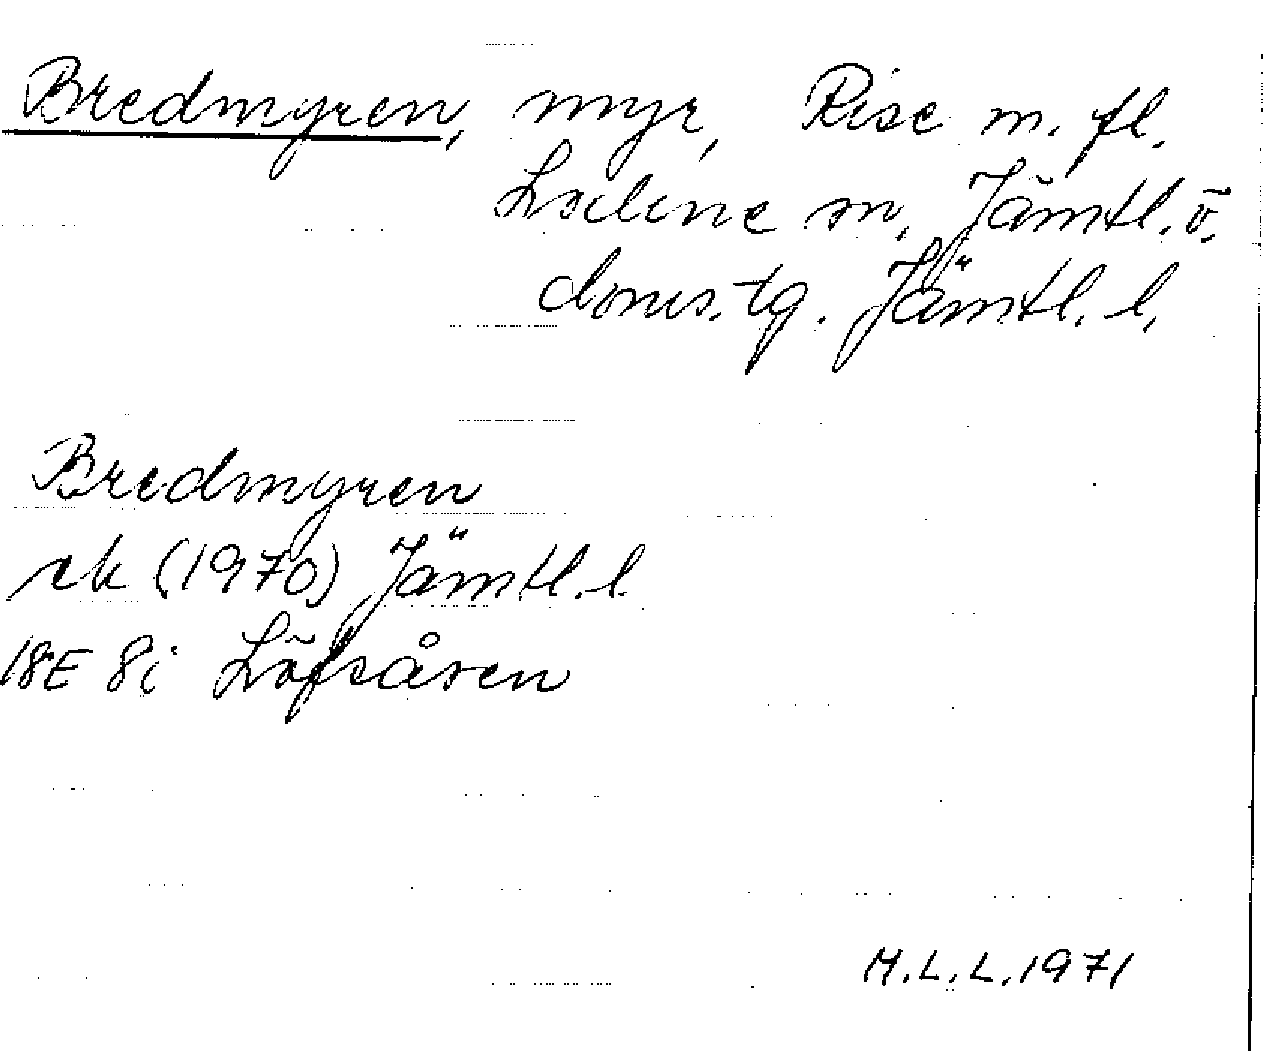 Bredmyren, myr, Rise m. fl.
Lockne sn, Jämtl. ö.
doms.tg. Jämtl. l.
Bredmyren
ek (1970) Jämtl. l
18E 8i Löfsåsen
M.L.L. 1971